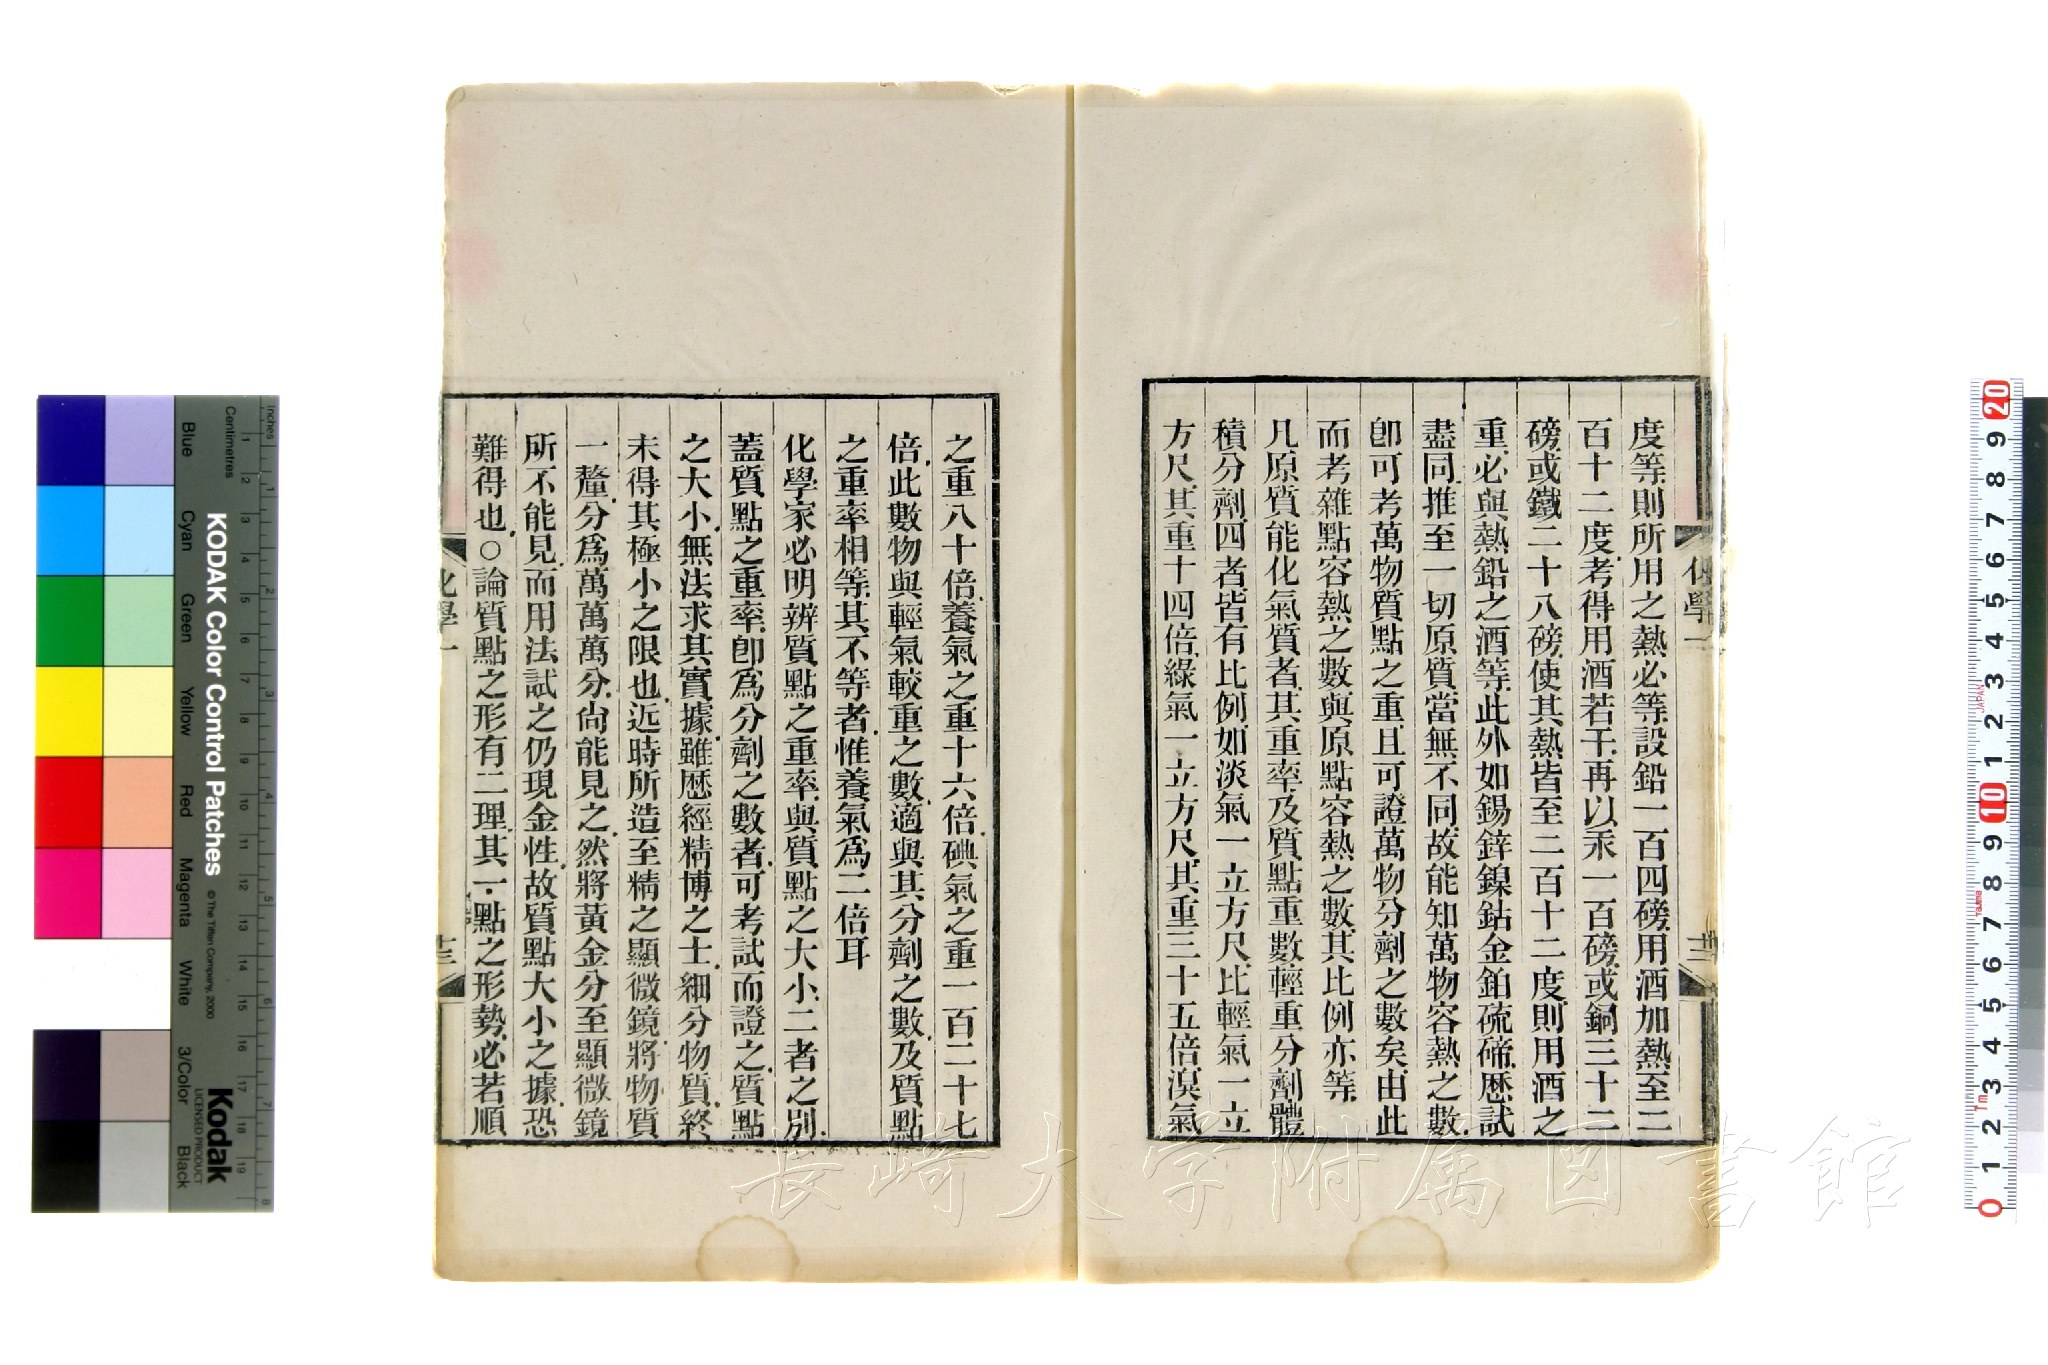 度等則所用之熱必等設鉛一百四磅用酒加熱至二
百十二度考得用酒若干再以汞一百磅或銅三十二
磅或鐵二十八磅使其熱皆至二百十二度則用酒之
重必與熱鉛之酒等此外如錫鋅鎳鈷金鉑硫碲歴試
盡同推至一切原質當無不同故能知萬物容熱之數
卽可考萬物質點之重且可證萬物分劑之數矣由此
而考雜點容熱之數與原點容熱之數其比例亦等
凡原質能化氣質者其重率及質點重數輕重分劑體
積分劑四者皆有比例如淡氣一立方尺比輕氣一立
方尺其重十四倍綠氣一立方尺其重三十五倍溴氣
化學一
之重八十倍養氣之重十六倍碘氣之重一百二十七
倍此數物與輕氣較重之數適與其分劑之數及質點
之重率相等其不等者惟養氣爲二倍耳
化學家必明辨質點之重率與質點之大小二者之別
蓋質點之重率卽爲分劑之數者可考試而證之質點
之大小無法求其實據雖歴經精博之士細分物質終
未得其極小之限也近時所造至精之顯微鏡將物質
一釐分爲萬萬萬分尙能見之然將黃金分至顯微鏡
所不能見而用法試之仍現金性故質點大小之據恐
難得也○論質點之形有二理其一點之形勢必若順
化學一
十三
KODAK Color Control Patches
© The Tiffen Company, 2000
Kodak
LICENSED PRODUCT
Inches
Centimetres
Blue
Cyan
Green
Yellow
Red
Magenta
White
3/Color
Black
長崎大学附属図書館